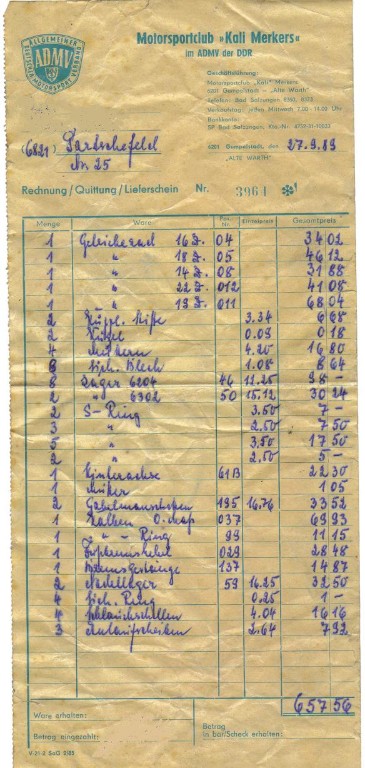 ALLGEMEINER DEUTSCHER MOTORSPORT VERBAND
ADMV
Motorsportclub »Kali Merkers«
im ADMV der DDR
Geschäftsführung:
Motorsportclub „Kali" Merkers
6201 Gumpelstadt – „Alte Warth"
Telefon: Bad Salzungen
Bankkonto:
6201 Gumpelstadt, den 27.9.89
"ALTE WARTH"
(6821)
Nr. 25
Rechnung / Quittung / Lieferschein Nr. 3964
Menge Ware Pos. Nr. Einzelpreis Gesamtpreis
1 16 Z. 04 34 02
1 " 18 Z. 05 46 12
1 " 14 Z. 08 31 88
1 " 22 Z. 012 41 08
1 " 19 Z. 011 68 04
2 3.34 6 68
2 0.09 0 18
4 4.20 16 80
8 Sich. Blech 1.08 8 64
8 Lager 6204 46 98 –
2 " 6302 50 15.12 30 24
2 S-Ring 3.50 7 –
3 " 2.50 7 50
5 " 3.50 17 50
2 " 2.50 5 –
1 Hinterachse 61B 22 30
1 1 05
2 195 16.76 33 52
1 Kolben 037 69 93
1 " - Ring 99 11 15
1 029 28 48
1 Bremsgestänge 137 14 87
2 Nadellager 59 16.25 32 50
4 Sich. Ring 0.25 1 –
4 Schlauchschellen 4.04 16 16
3 Anlaufscheiben 2.64 7 92
657 56
Ware erhalten:
Betrag eingezahlt:
Betrag
in bar/Scheck erhalten: